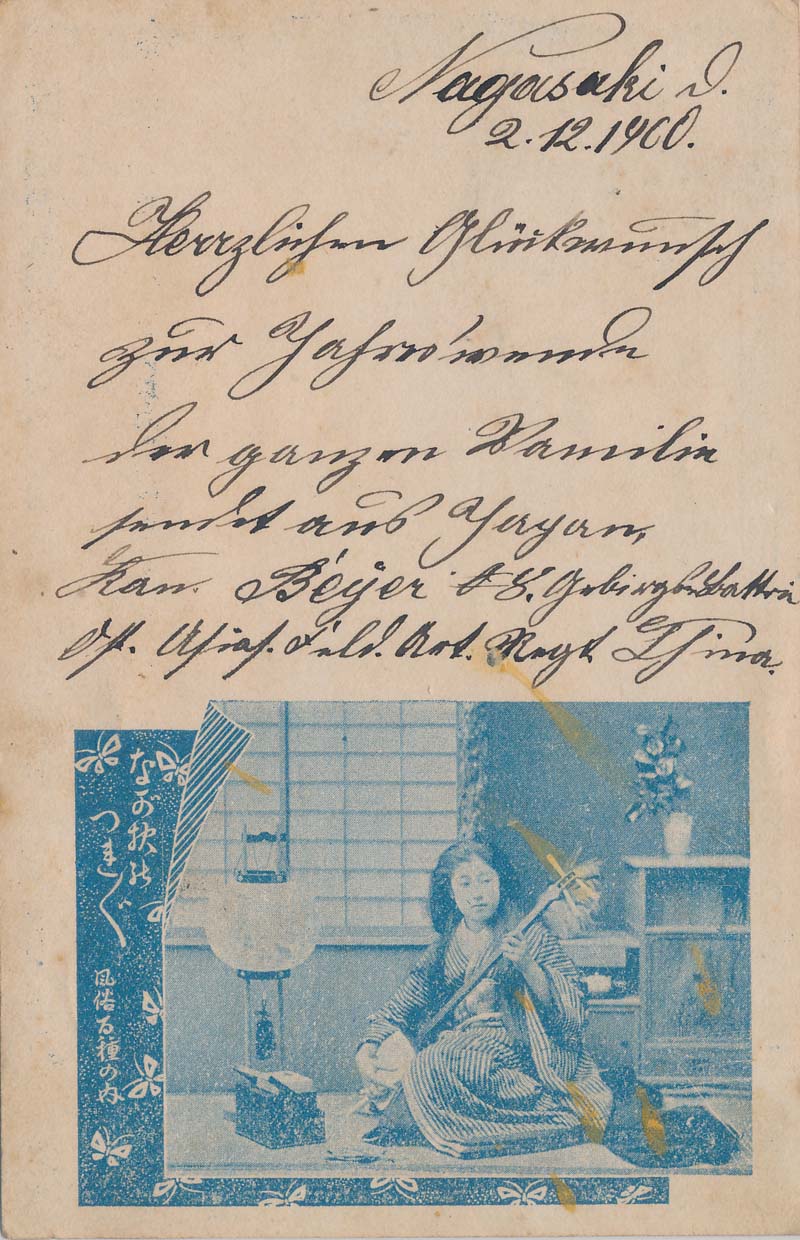 Nagasaki d.
2.12.1900.
Herzlichen Glückwunsch
zur Jahreswende
der ganzen Familie
sendet aus Japan,
Kan. Beÿer 8. Gebirgsbattrie
Ost. Asias. Feld. Art. Regt. China.
なが夜の
つれ〴〵
風俗百種の内